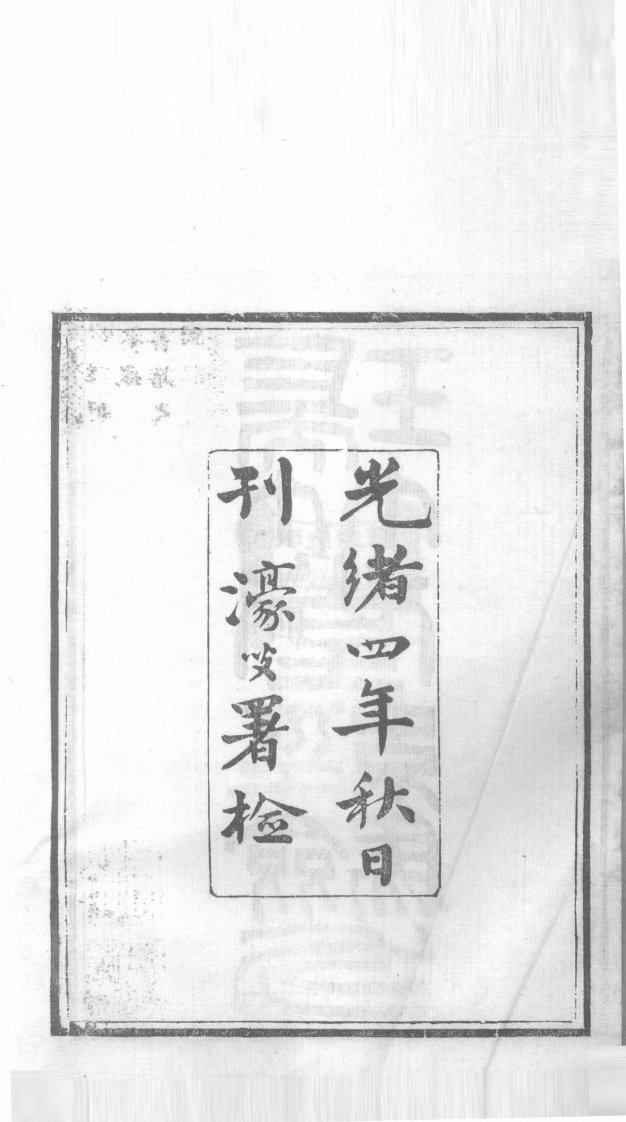 光緒四年秋日
刊濠叟署檢